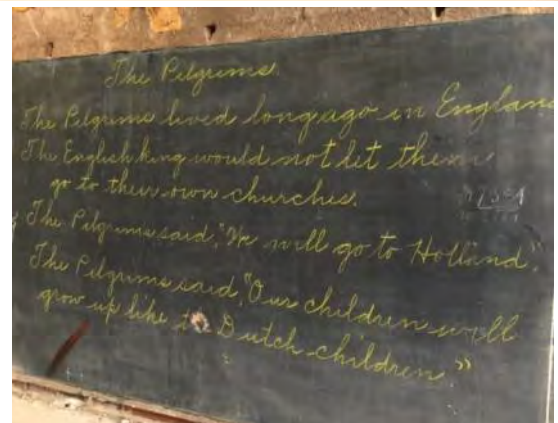 The Pilgrims.
The Pilgrims lived long ago in Englan
The English king would not let them
go to their own churches.
The Pilgrims said, "We will go to Holland."
The Pilgrims said, "Our children will
grow up like Dutch children."